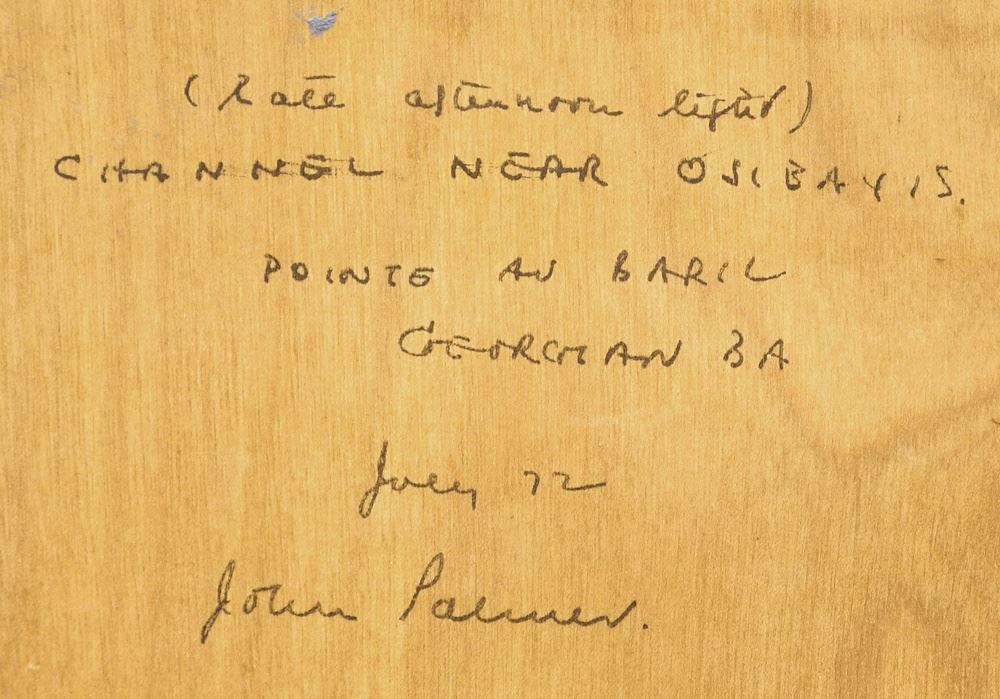 (Late afternoon light)
CHANNEL NEAR OJIBAY IS.
POINTE AU BARIL
GEORGIAN BA
July 72
John Palmer.